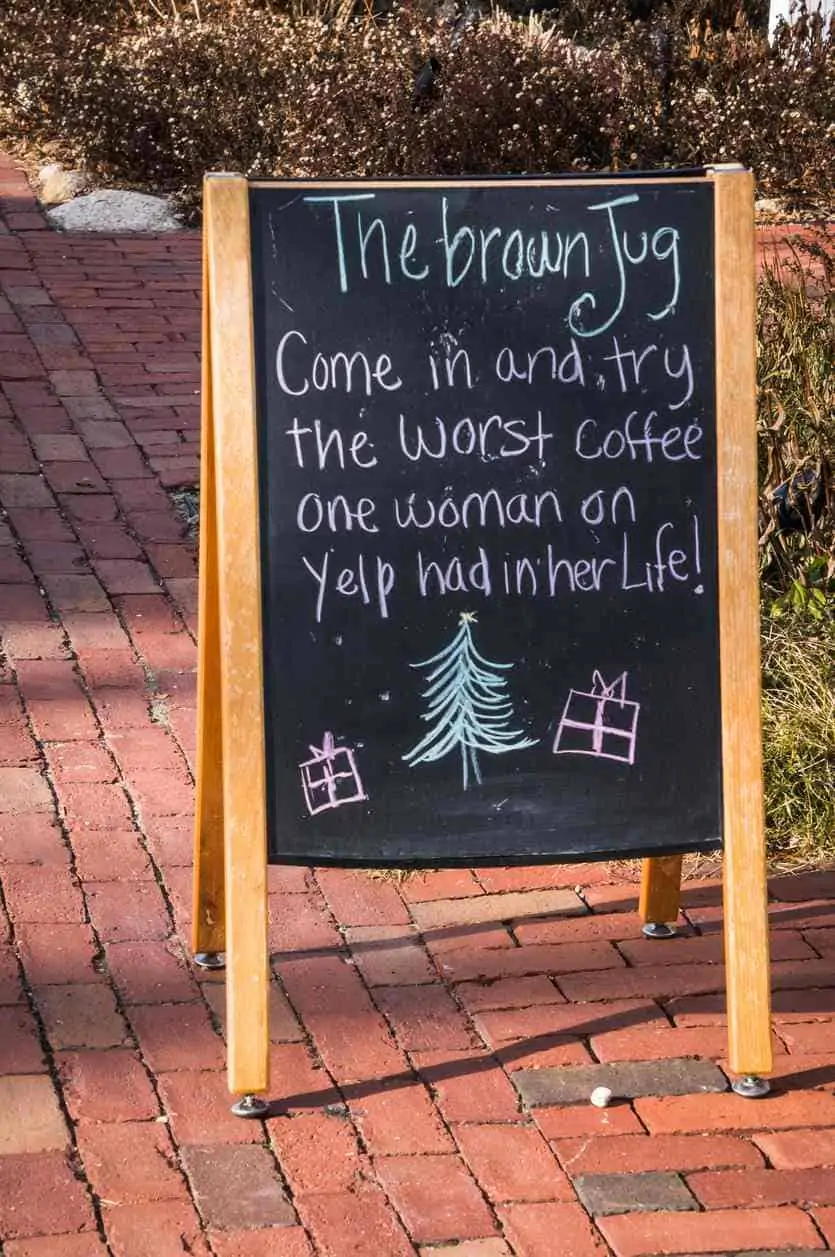 The brown Jug
Come in and try
the worst coffee
one woman on
Yelp had in her Life!